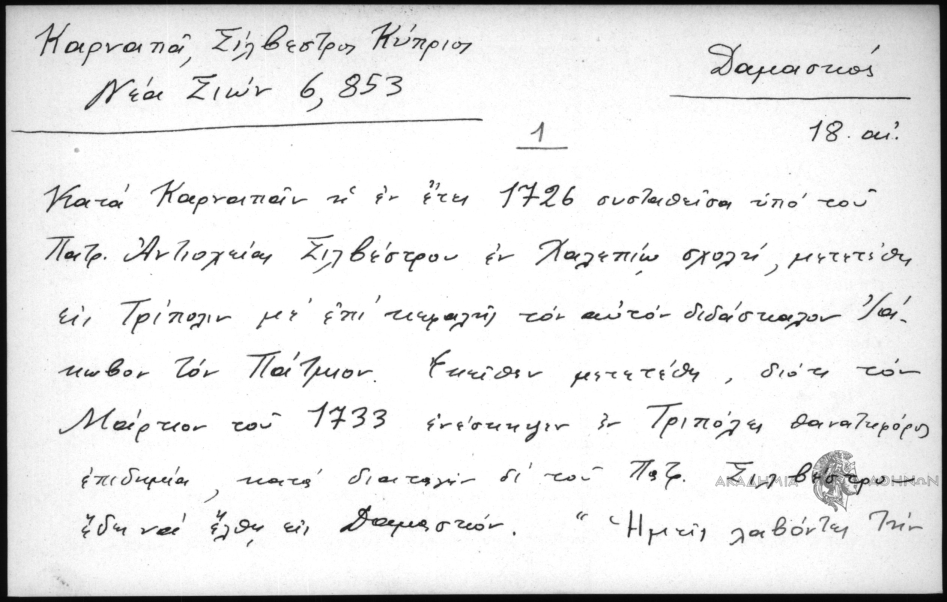 Καρναπᾶ, Σίλβεστρος Κύπριος
Νέα Σιών 6, 853
Δαμασκός
1
18. αἰ.
Κατά Καρναπᾶν ἡ ἐν ἔτει 1726 συσταθεῖσα ὑπό τοῦ
Πατρ. Ἀντιοχείας Σιλβέστρου ἐν Χαλεπίῳ σχολή, μετετέθη
εἰς Τρίπολιν μέ ἐπί κεφαλῆς τόν αὐτόν διδάσκαλον Ἰά-
κωβον τόν Πάτμιον. Ἐκεῖθεν μετετέθη, διότι τόν
Μάρτιον τοῦ 1733 ἐνέσκηψεν ἐν Τριπόλει θανατηφόρος
ἐπιδημία, κατά διαταγήν δέ τοῦ Πατρ. Σιλβέστρου
ἔδει νά ἔλθῃ εἰς Δαμασκόν. "Ἡμεῖς λαβόντες τήν
ΑΚΑΔΗΜΙΑ ΑΘΗΝΩΝ